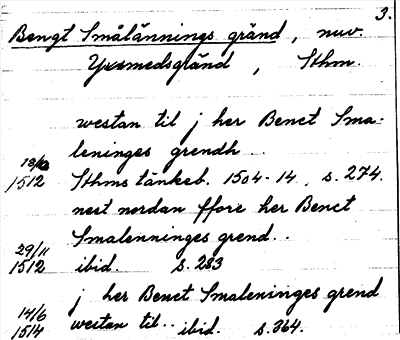 3.
Bengt Smålännings gränd, nuv.
Yxsmedsgränd, Sthm.
westan til j her Benct Sma-
leninges grendh
1512 Sthms tänkeb. 1504-14, s. 274.
nest nordan ffore her Benct
Smalenninges grend..
29/11
1512 ibid. s. 283
j her Benct Smaleninges grend
14/6
1514 westan til.. ibid. s. 364.